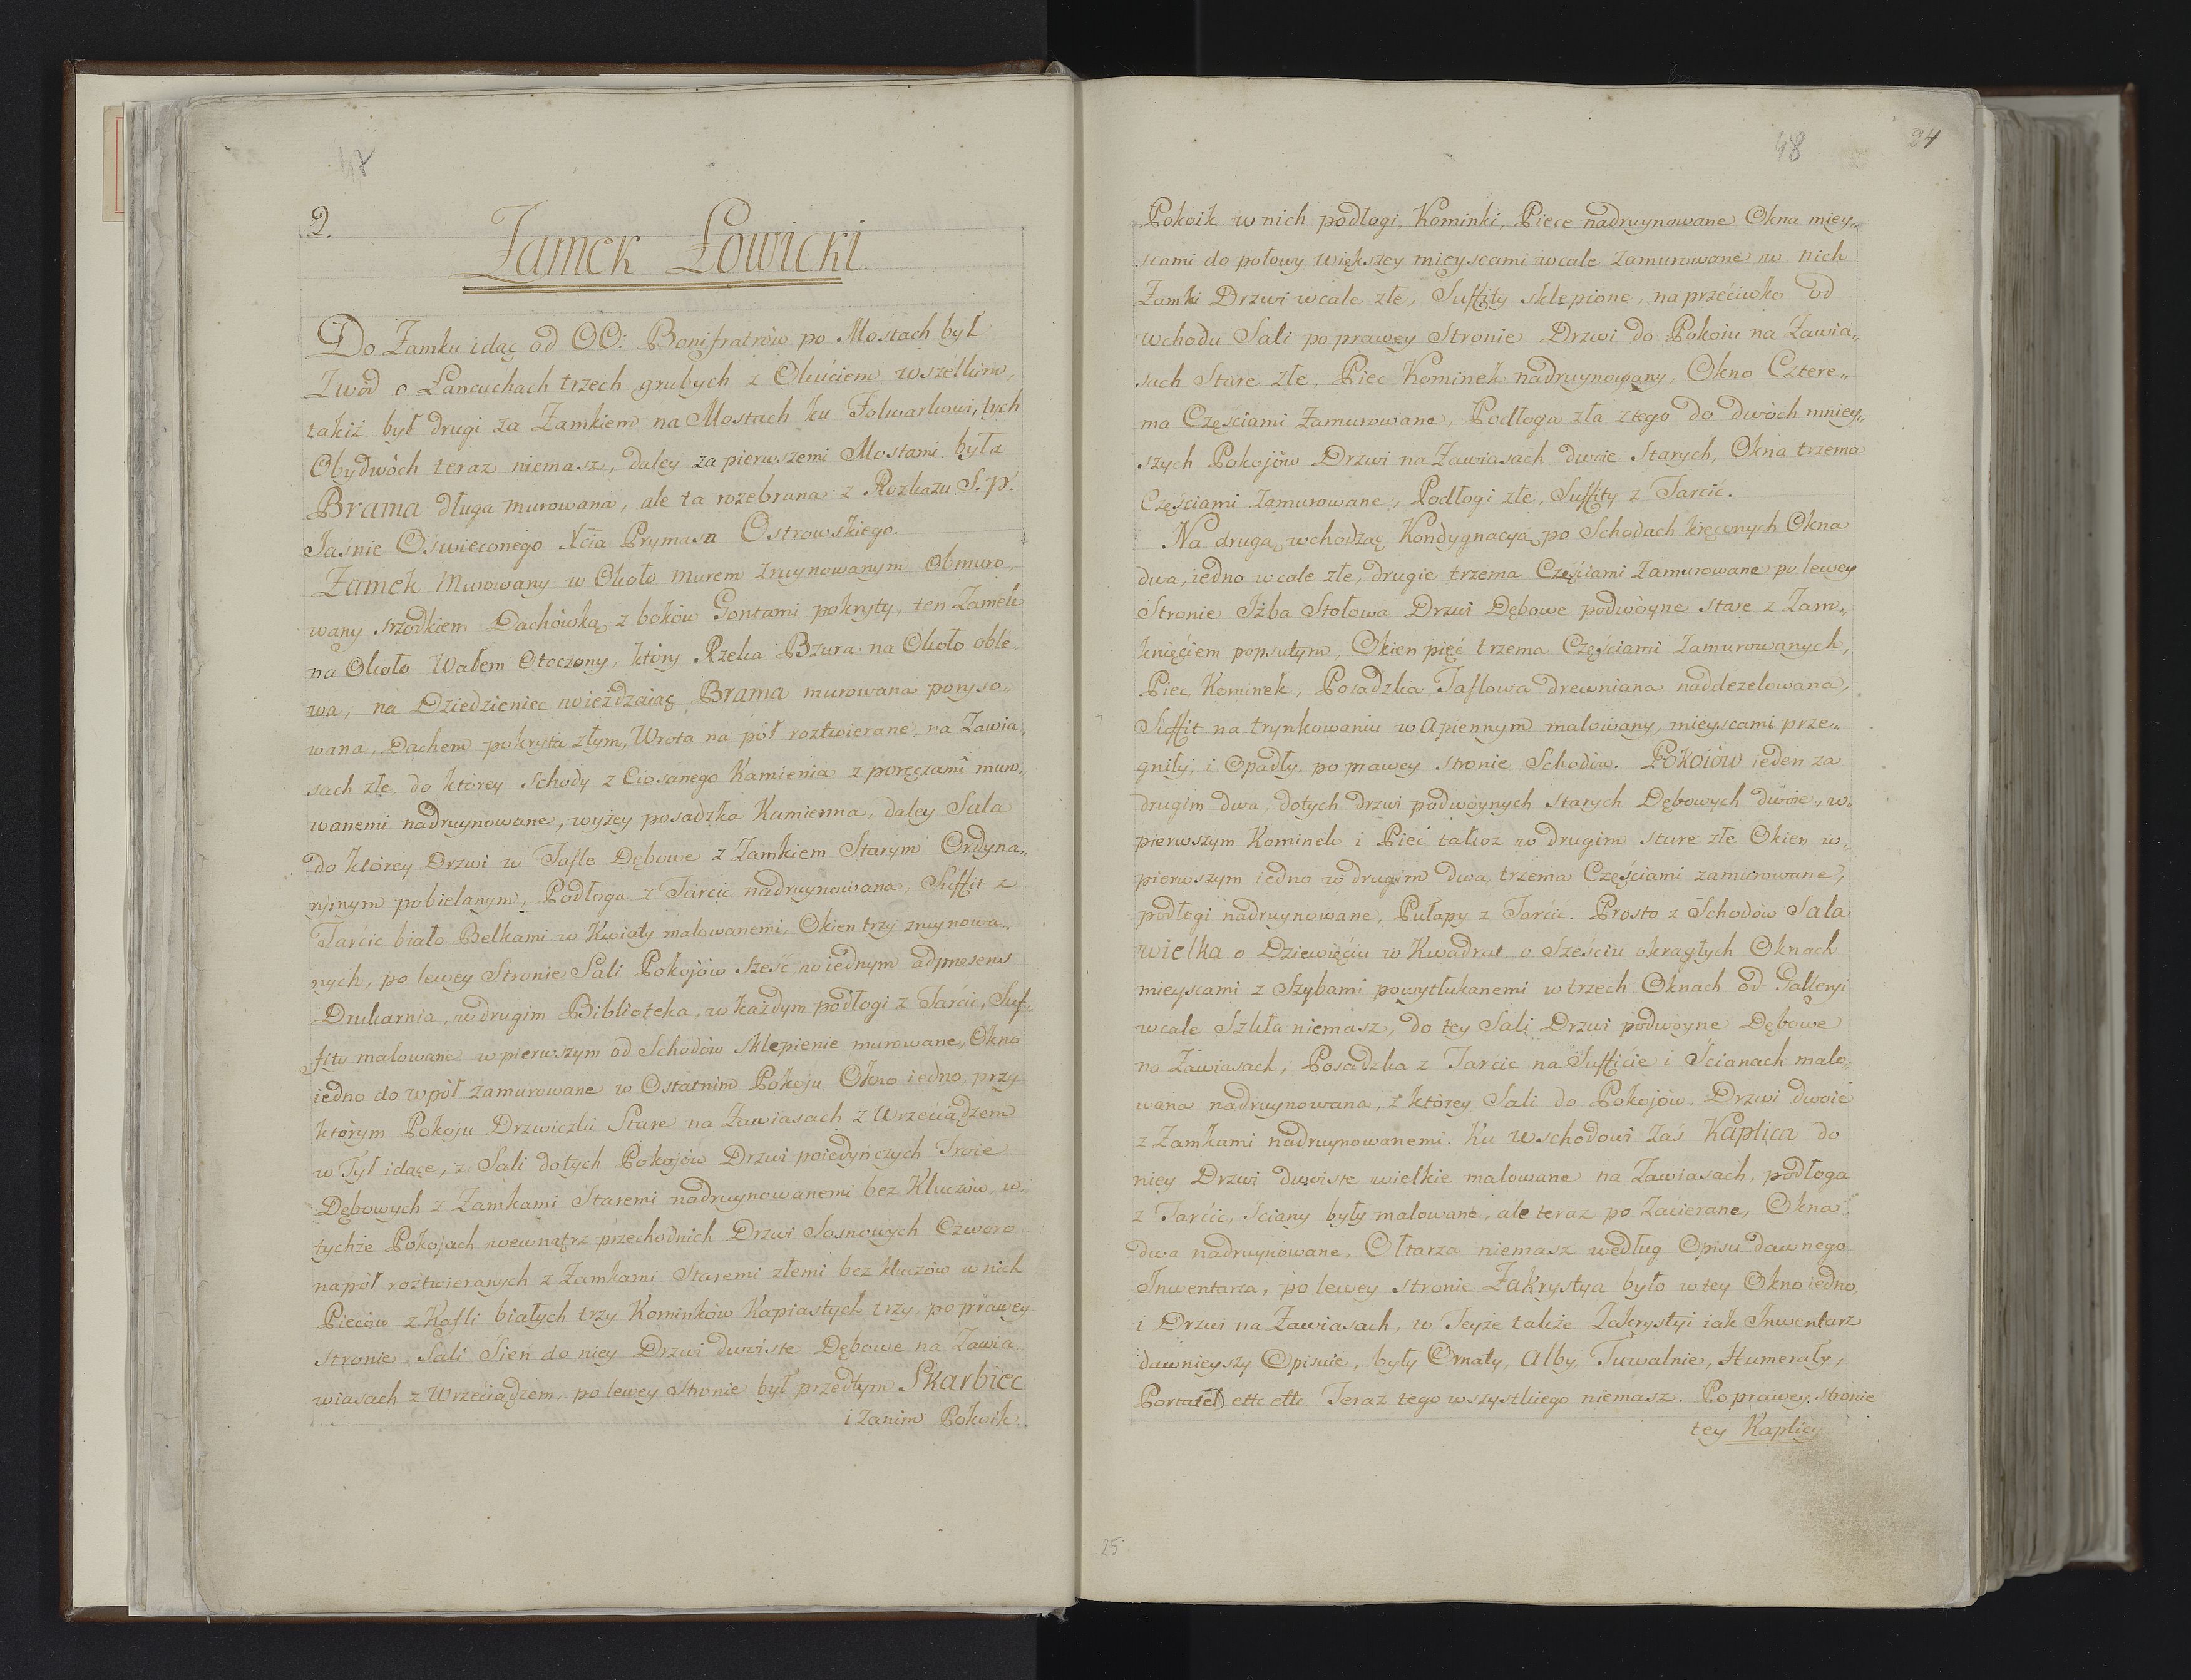 47
2.
Zamek Łowicki.
Do Zamku idąc od OO: Bonifratrów po Mostach był
Zwód o Łancuchach trzech grubych z Okuciem wszelkim,
takiż był drugi za Zamkiem na Mostach ku Folwarkowi, tych
Obydwóch teraz niemasz, daley za pierwszemi Mostami była
Brama długa murowana, ale ta rozebrana z Rozkazu S. p.
Jaśnie Oświeconego Xcia Prymasa Ostrowskiego.
Zamek Murowany w Około murem zruynowanym obmuro„
wany srzodkiem Dachówką z boków Gontami pokryty, ten Zamek
na Około Wałem Otoczony, który Rzeka Bzura na Około oble„
wa, na Dziedzieniec wieżdzaiąc Brama murowana poryso„
wana, Dachem pokryta złym, Wrota na pół roztwierane na Zawia„
sach złe do ktorey Schody z Ciosanego Kamienia z poręczami muro„
wanemi nadruynowane, wyżey posadzka Kamienna, daley Sala
do którey Drzwi w Tafle Dębowe z Zamkiem Starym Ordyna„
ryinym pobielanym, Podłoga z Tarcic nadruynowana, Suffit z
Tarcic biało Belkami w Kwiaty malowanemi, Okien trzy zruynowa„
nych, po lewey Stronie Sali Pokojów sześć, w iednym adpraesens
Drukarnia, w drugim Biblioteka, w każdym podłogi z Tarcic, Suf„
fity malowane w pierwszym od Schodów Sklepienie murowane, Okno
iedno do wpół zamurowane w Ostatnim Pokoju Okno iedno przy
którym Pokoju Drzwiczki Stare na Zawiasach z Wrzeciądzem
w Tył idące, z Sali do tych Pokojów Drzwi poiedyńczych Troie
Dębowych z Zamkami Staremi nadruynowanemi bez Kluczów w
tychże Pokojach wewnątrz przechodnich Drzwi Sosnowych Czworo
na pół roztwieranych z Zamkami Staremi złemi bez kluczów w nich
Pieców z Kafli białych trzy Kominków Kapiastych trzy, po prawey
stronie Sali Sień do niey Drzwi dwoiste Dębowe na Zawia„
wiasach z Wrzeciądzem, po lewey stronie był przedtym Skarbiec
i zanim Pokoik
48
24
Pokoik w nich podłogi, Kominki, Piece nadruynowane Okna miey„
scami do połowy większey mieyscami wcale zamurowane w nich
Zamki Drzwi wcale złe, Suffity sklepione, na przećiwko od
wchodu Sali po prawey Stronie Drzwi do Pokoiu na Zawia„
sach Stare złe, Piec Kominek nadruynowany, Okno Cztere„
ma Częsciami Zamurowane, Podłoga zła z tego do dwóch mniey„
szych Pokojów Drzwi na Zawiasach dwoie Starych, Okna trzema
Częściami zamurowane, Podłogi złe, Suffity z Tarcic.
Na drugą wchodząc Kondygnacyą po Schodach kręconych Okna
dwa, iedno wcale złe, drugie trzema Częściami zamurowane po lewey
Stronie Jzba Stołowa Drzwi Dębowe podwóyne stare z Zam„
knięćiem popsutym, Okien pięć trzema Częściami zamurowanych,
Piec, Kominek, Posadzka Taflowa drewniana naddezelowana,
Suffit na trynkowaniu wapiennym malowany, mieyscami prze„
gniły, i Opadły po prawey stronie Schodów. Pokoiów ieden za
drugim dwa, do tych drzwi podwóynych starych Dębowych dwoie, w
pierwszym Kominek i Piec takoż w drugim stare złe Okien w„
pierwszym iedno w drugim dwa, trzema Częściami zamurowane,
podłogi nadruynowane, Pułapy z Tarcic. Prosto z Schodów Sala
wielka o Dziewięciu w Kwadrat o Sześciu okragłych Oknach
mieyscami z Szybami powytłukanemi w trzech Oknach od Galleryi
wcale Szkła niemasz, do tey Sali Drzwi podwoyne Dębowe
na Zawiasach, Posadzka z Tarcic na Sufficie i Ścianach malo„
wana nadruynowana, z którey Sali do Pokojów Drzwi dwoie
z Zamkami nadruynowanemi. Ku wschodowi zaś Kaplica do
niey Drzwi dwoiste wielkie malowane na Zawiasach, podłoga
z Tarcic, ściany były malowane, ale teraz po Zacierane, Okna
dwa nadruynowane, Ołtarza niemasz według Opisu dawnego
Jnwentarza, po lewey stronie Zakrystya było w tey Okno iedno
i Drzwi na Zawiasach, w Teyże także Zakrystyi iak Jnwentarz
dawnieyszy Opisuie, były Ornaty, Alby, Tuwalnie, Humerały,
Portatel ettc ettc Teraz tego wszystkiego niemasz. Po prawey stronie
tey Kaplicy
25